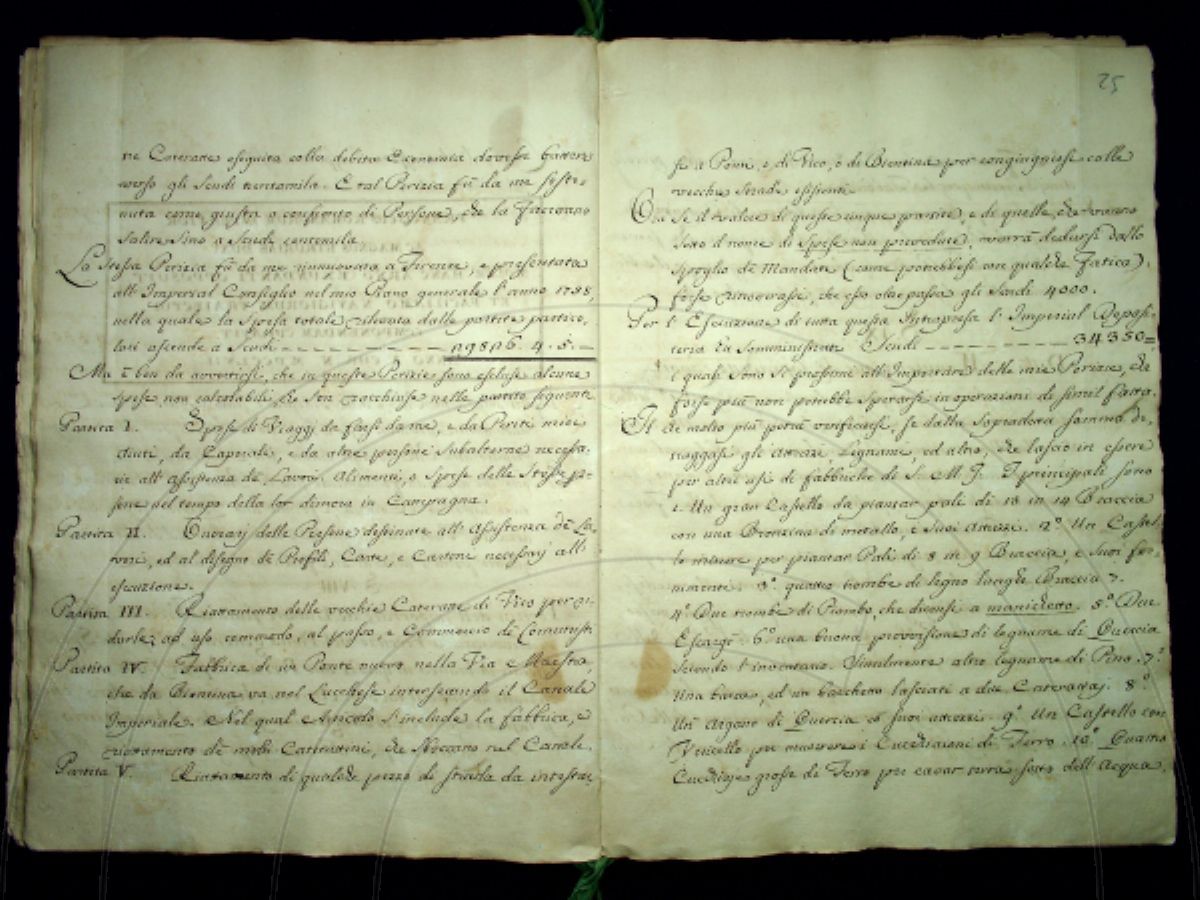 25
ve Cateratte eseguita colla debita Economia dovesse battere
verso gli Scudi trentamila. E tal Perizia fù da me soste-
nuta come giusta a confronto di Persone, che la facevano
salire sino a Scudi centomila.
La stessa Perizia fù da me rinnovata a Firenze, e presentata
all' Imperial Consiglio nel mio Piano generale l'anno 1758,
nella quale la Spesa totale rilevata dalle partite partico-
lari ascende a Scudi 4. 5.
Ma è ben da avvertirsi, che in queste Perizie sono escluse alcune
spese non calcolabili, che son racchiuse nelle partite seguenti
Partita I. Spese di Viaggi da farsi da me, e da Periti miei
Aiuti, da Caporale, e da altre persone subalterne necessa-
rie all' assistenza de' Lavori. Alimenti, e Spese delle stesse per-
sone nel tempo della lor dimora in Campagna.
Partita II. Onorarj delle Persone destinate all' assistenza de' La-
vori, ed al disegno de' Profili, Carte, e Cartoni necessarj all'
esecuzione.
Partita III. Riattamento delle vecchie Cateratte di Vico per ri-
darle ad uso comodo, al passo, e Commercio di
Partita IV. Fabbrica di un Ponte nuovo nella Via Maestra,
che da Bientina va nel Lucchese intersecando il Canale
Imperiale. Nel qual Articolo s'include la fabbrica, e
riattamento de' molti che sboccano nel Canale.
Partita V. Riattamento di qualche pezzo di strada da
se a Ponti, e di Vico, e di Bientina per congiungersi colle
vecchie strade esistenti.
Ora se il valore di queste cinque partite, e di quelle, che vanno
sotto il nome di Spese non prevedute, verrà dedursi dallo
Spoglio de' Mandati (come potrebbesi con qualche fatica),
forse rinverrassi, che esso oltrepassa gli Scudi 4000.
Per l' Esecuzione di tutta questa Intrapresa l' Imperial Deposi-
teria ha somministrati Scudi 34350=
i quali sono sì prossimi all' Importare delle mie Perizie, che
forse più non potrebbe sperarsi in operazioni di simil fatta.
Il che molto più potrà verificarsi, se dalla sopradetta somma de-
traggasi gli Attrezzi, Legname, ed altro, che lascio in essere
per altri usi di fabbriche di S. M. I. I principali sono
1. Un gran Castello da piantar pali di 13 in 14 Braccia
con una Bronzina di metallo, e suoi Attrezzi. 2.° Un Castel-
lo minore per piantar Pali di 8 in 9 Braccia, e suoi for-
nimenti. 3.° quattro trombe di legno lunghe Braccia 7.
4.° Due trombe di Piombo, che diconsi a manichetto. 5.° Due
6.° una buona provvisione di legname di Quercia
secondo l'inventario. Similmente altro legname di Pino. 7.°
Una barca, ed un barchetto lasciati a due Caterattaj. 8.°
Un Argano di Quercia co' suoi attrezzi. 9.° Un Castello con
Verricello per muovere i Cucchiaioni di Ferro. 10.° Quattro
Cucchiaje grosse di Ferro per cavar terra sotto dell' Acqua.